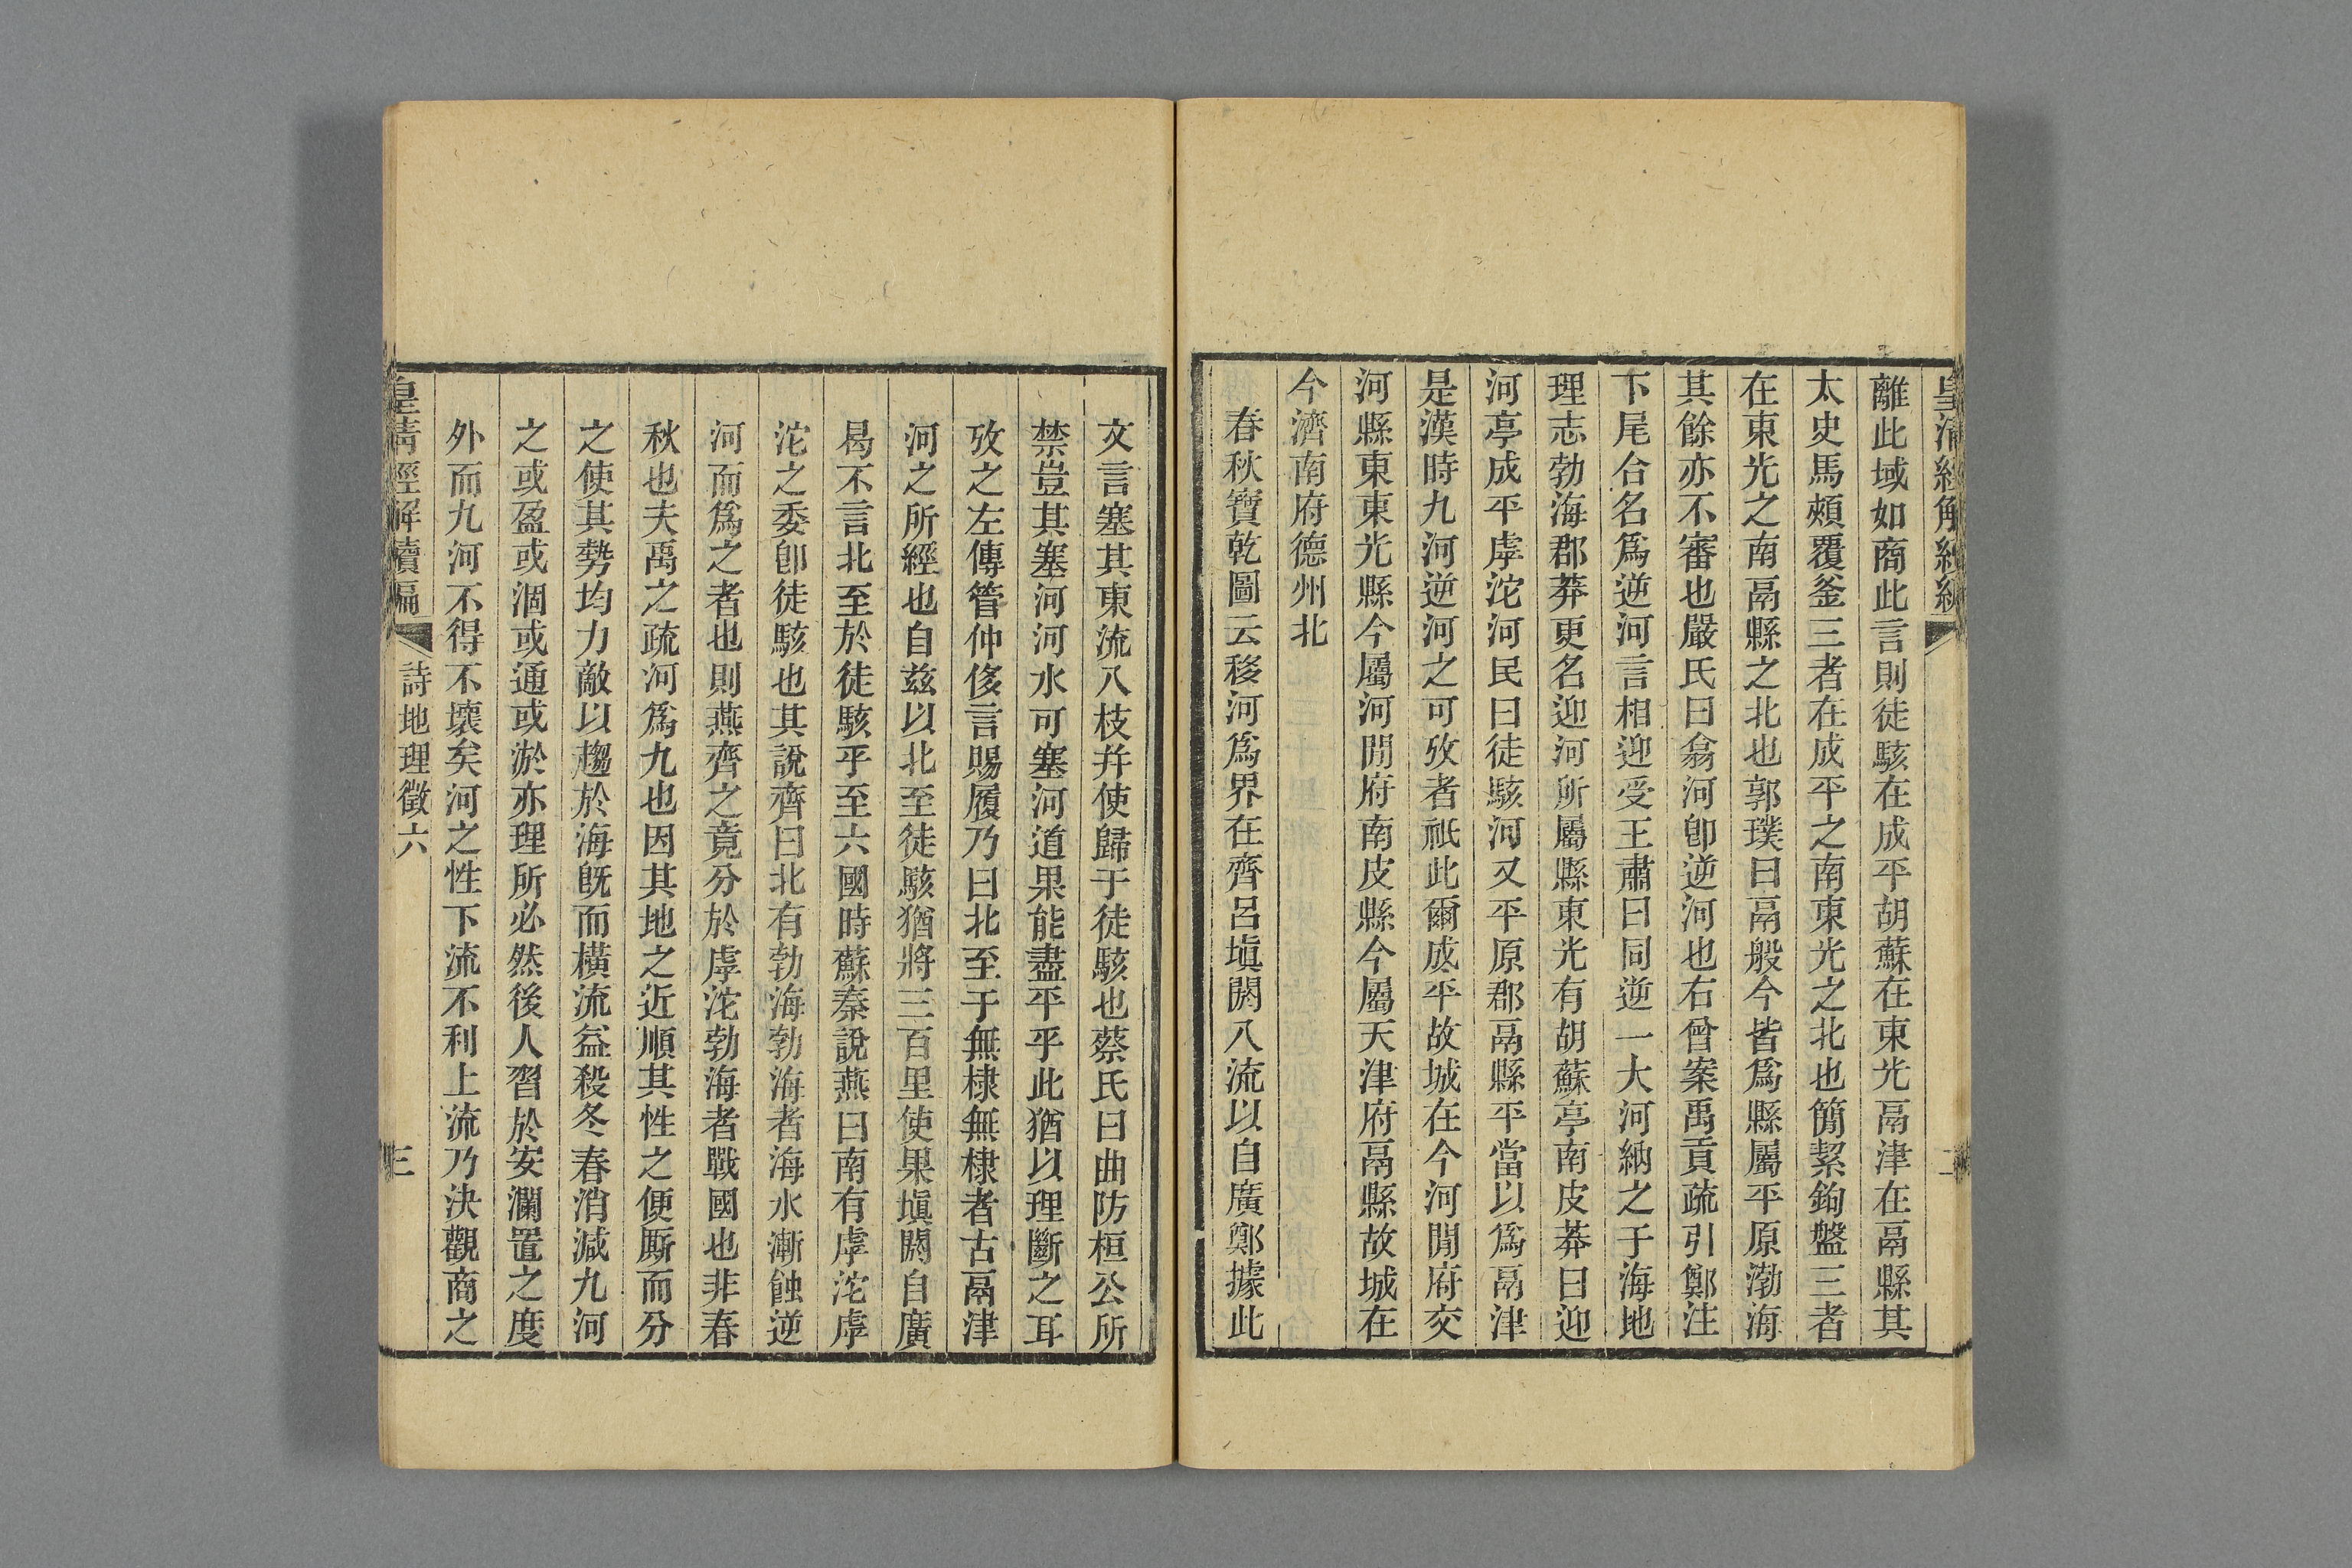 離此域如商此言則徒駭在成平胡蘇在東光鬲津在鬲縣其
太史馬頰覆釜三者在成平之南東光之北也簡絜鉤盤三者
在東光之南鬲縣之北也郭璞曰鬲般今皆爲縣屬平原渤海
其餘亦不審也嚴氏曰翕河卽逆河也右曾案禹貢疏引鄭注
下尾合名爲逆河言相迎受王肅曰同逆一大河納之于海地
理志勃海郡莽更名迎河所屬縣東光有胡蘇亭南皮莽曰迎
河亭成平虖沱河民曰徒駭河又平原郡鬲縣平當以爲鬲津
是漢時九河逆河之可攷者祇此爾成平故城在今河閒府交
河縣東東光縣今屬河閒府南皮縣今屬天津府鬲縣故城在
今濟南府德州北
春秋寶乾圖云移河爲界在齊呂塡閼八流以自廣鄭據此
文言塞其東流八枝幷使歸于徒駭也蔡氏曰曲防桓公所
禁豈其塞河河水可塞河道果能盡平乎此猶以理斷之耳
攷之左傳管仲侈言賜履乃曰北至于無棣無棣者古鬲津
河之所經也自兹以北至徒駭猶將三百里使果塡閼自廣
曷不言北至於徒駭乎至六國時蘇秦說燕曰南有虖沱虖
沱之委卽徒駭也其說齊曰北有勃海勃海者海水漸蝕逆
河而爲之者也則燕齊之竟分於虖沱勃海者戰國也非春
秋也夫禹之疏河爲九也因其地之近順其性之便厮而分
之使其勢均力敵以趨於海旣而橫流益殺冬春消減九河
之或盈或涸或通或淤亦理所必然後人習於安瀾置之度
外而九河不得不壞矣河之性下流不利上流乃決觀商之
皇清經解續編 詩地理徵六 三